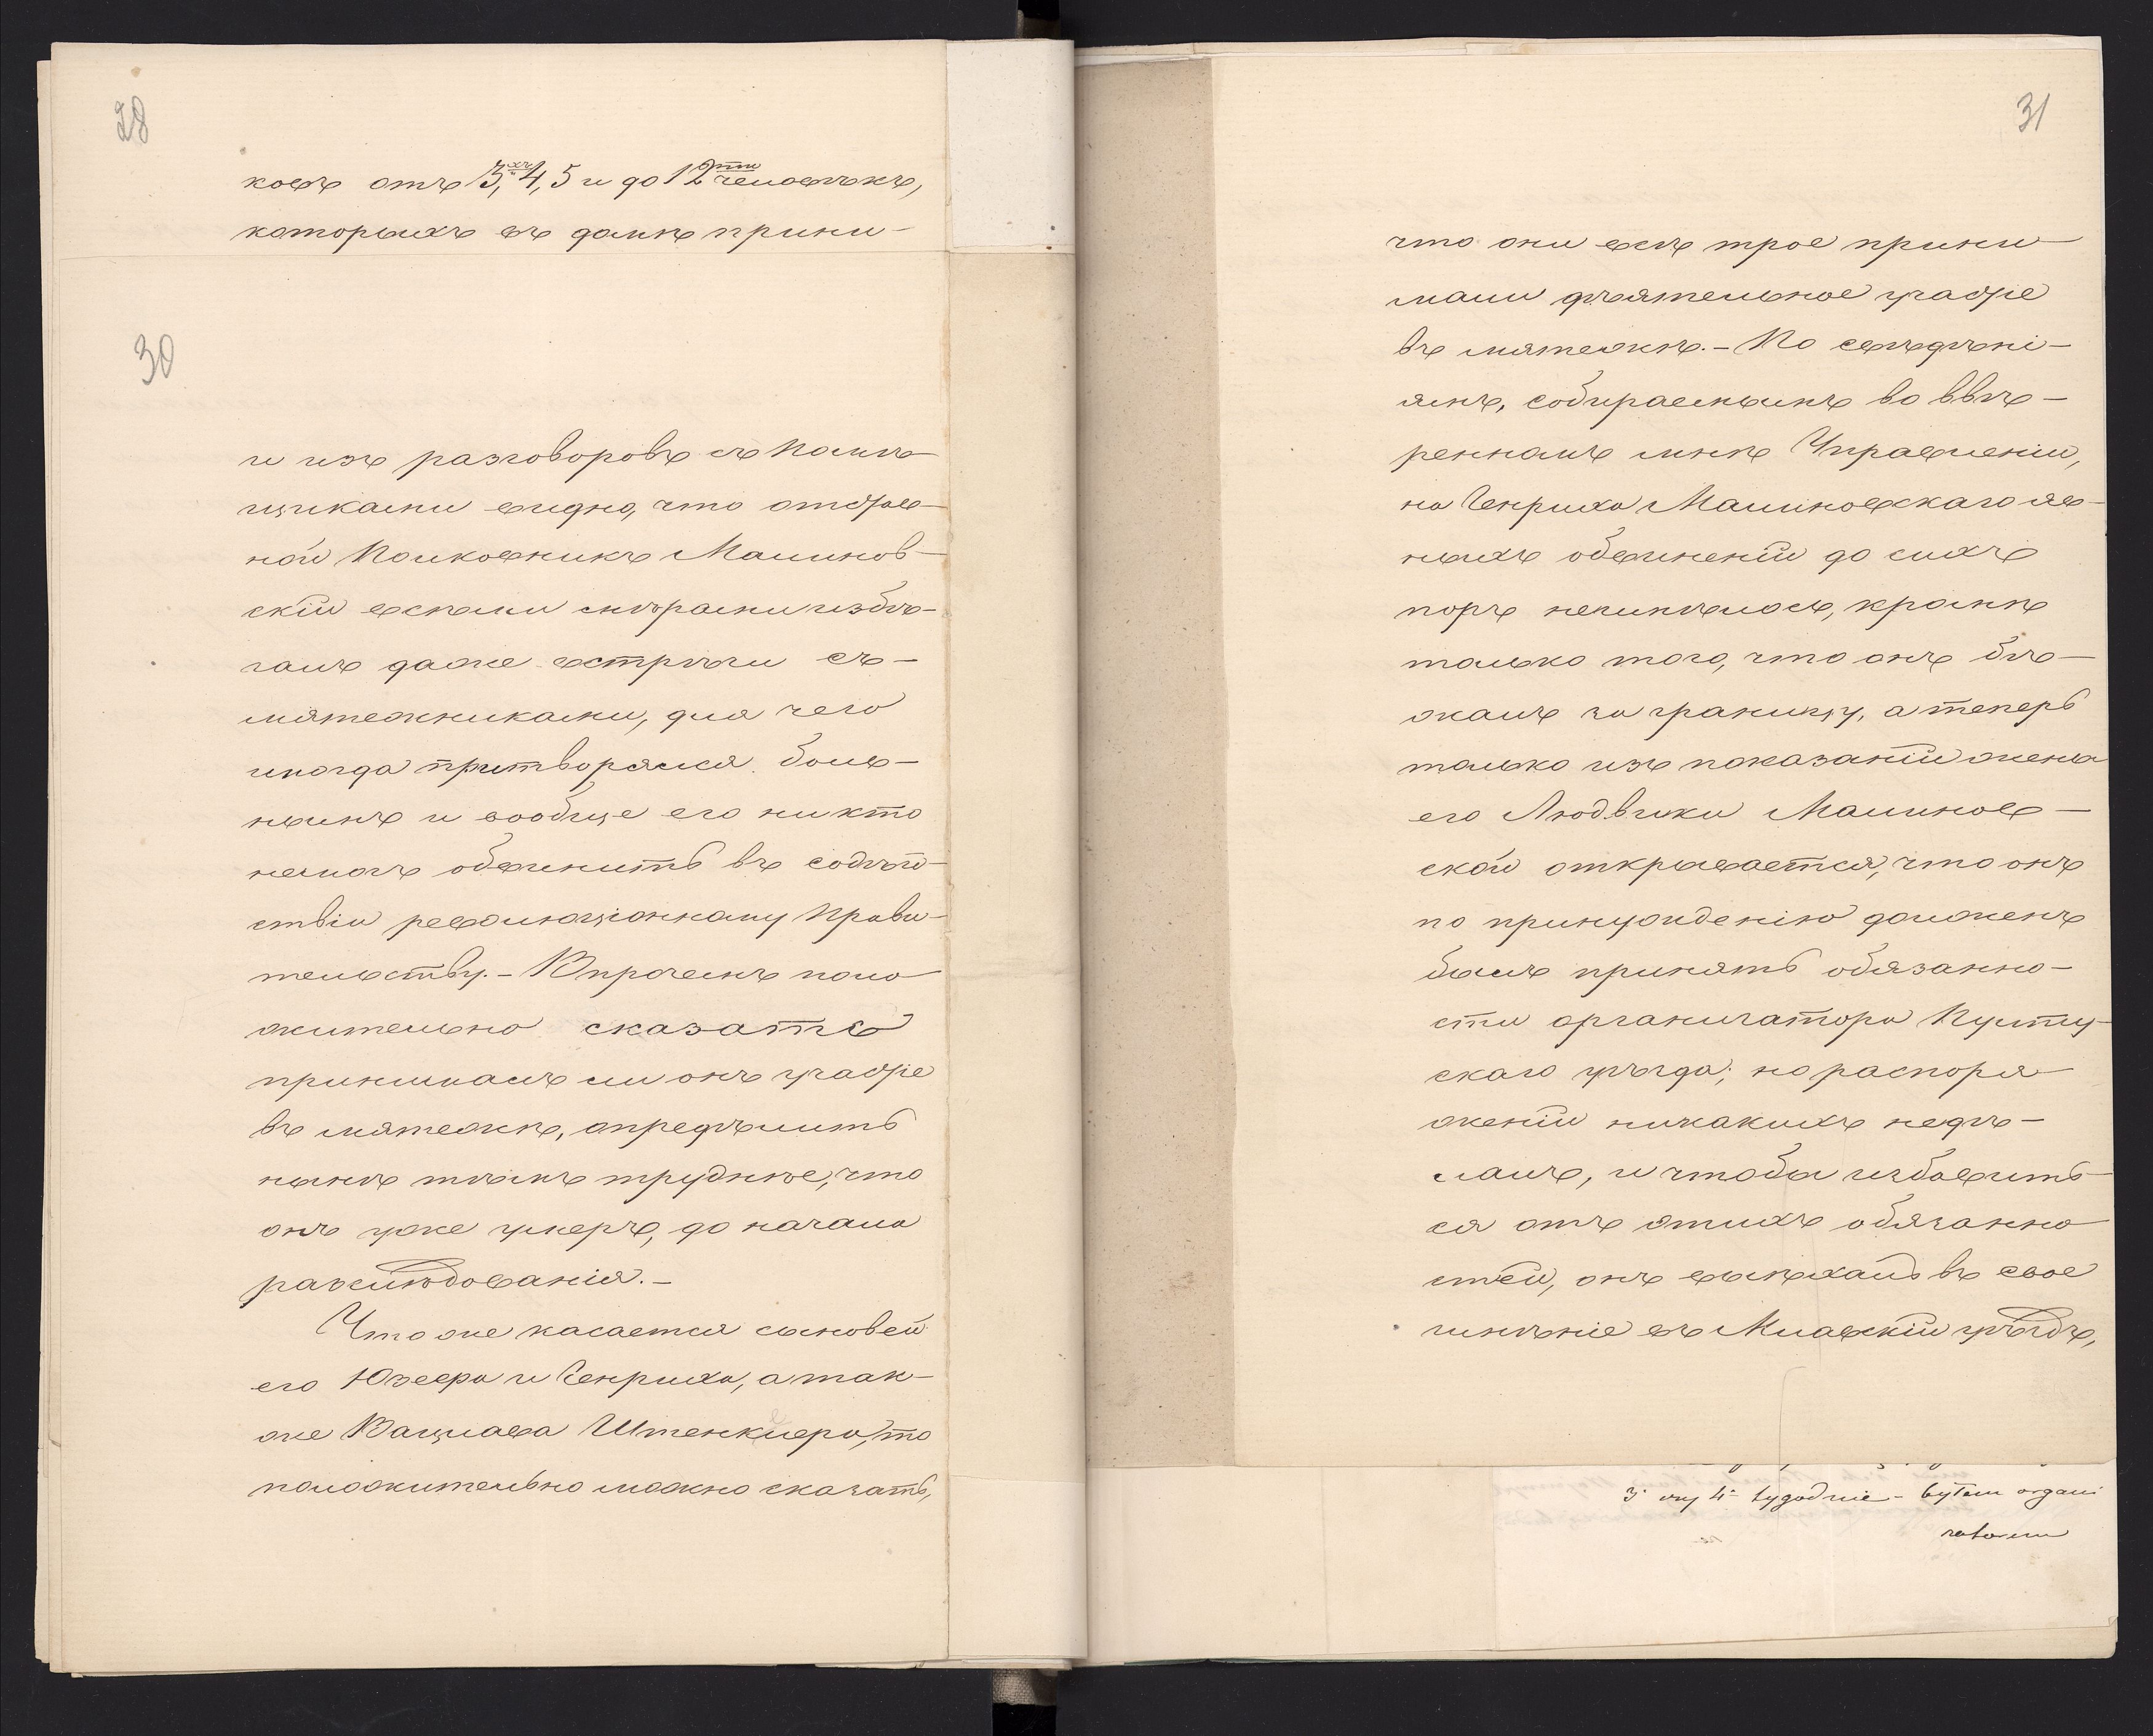 28
ковъ отъ 3,хъ 4, 5 и до 12ти человѣкъ,
которыхъ въ домѣ прини-
30
и изъ разговоровъ съ Помѣ-
щиками видно, что отстав-
ной Полковникъ Малинов-
скій всѣми мѣрами избѣ-
галъ даже встрѣчи съ-
мятежниками, для чего
иногда притворялся боль-
нымъ и вообще его никто
немогъ обвинить въ содѣй-
ствіи революціонному Прави-
тельству. - Впрочемъ поло
жительно сказать
принималъ ли онъ участіе
въ мятежѣ, опредѣлить
нынѣ тѣмъ труднѣе, что
онъ уже умеръ, до начала
разслѣдованія. -
Что же касается сыновей
его Юзефа и Генриха, а так-
же Вацлава Штенклера, то
положительно можно сказать,
31
что они всѣ трое прини-
мали дѣятельное участіе
въ мятежѣ. - По свѣдѣні-
ямъ, собираемымъ во ввѣ-
ренномъ мнѣ Управленіи,
на Генриха Малиновскаго яв-
ныхъ обвиненій до сихъ
поръ неимѣлось, кромѣ
только того, что онъ бѣ-
жалъ за границу, а теперь
только изъ показаній жены
его Людвики Малинов-
ской открывается, что онъ
по принужденію долженъ
былъ принять обязанно-
сти организатора Пулту-
скаго уѣзда; но распоря-
женій никакихъ недѣ-
лалъ, и чтобы избавить-
ся отъ этихъ обязанно
стей, онъ выѣхалъ въ свое
имѣніе въ Млавскій уѣздъ,
3 czy 4 tygodnie - byłem organi
zatorem